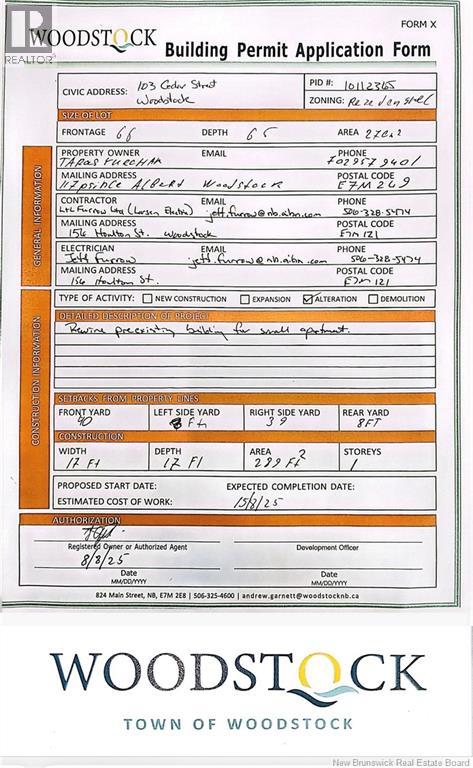 FORM X
WOODSTOCK
Building Permit Application Form
R
REALTOR®
CIVIC ADDRESS: 103 Cedar Street
Woodstock
PID #: 10112365
ZONING:
SIZE OF LOT
FRONTAGE 66 DEPTH 65 AREA
GENERAL INFORMATION
PROPERTY OWNER EMAIL PHONE
TARAS
MAILING ADDRESS POSTAL CODE
117 prince Albert Woodstock E7M 2G9
CONTRACTOR EMAIL PHONE
Furrow jeff.furrow@nb.aibn.com 506-328-5474
MAILING ADDRESS POSTAL CODE
156 Houlton St. Woodstock E7M 1Z1
ELECTRICIAN EMAIL PHONE
Jeff Furrow jeff.furrow@nb.aibn.com 506-328-5474
MAILING ADDRESS POSTAL CODE
156 Houlton St. E7M 1Z1
CONSTRUCTION INFORMATION
TYPE OF ACTIVITY: NEW CONSTRUCTION EXPANSION ALTERATION DEMOLITION
DETAILED DESCRIPTION OF PROJECT
Rewire preexisting building for small apartment.
SETBACKS FROM PROPERTY LINES
FRONT YARD LEFT SIDE YARD RIGHT SIDE YARD REAR YARD
90 8 Ft 39 8FT
CONSTRUCTION
WIDTH DEPTH AREA STOREYS
17 Ft 17 Ft 289 Ft² 1
PROPOSED START DATE: EXPECTED COMPLETION DATE:
ESTIMATED COST OF WORK: 15/8/25
AUTHORIZATION
Registered Owner or Authorized Agent Development Officer
8/8/25
Date Date
MM/DD/YYYY MM/DD/YYYY
824 Main Street, NB, E7M 2E8 | 506-325-4600 | andrew.garnett@woodstocknb.ca
WOODSTOCK
TOWN OF WOODSTOCK
New Brunswick Real Estate Board